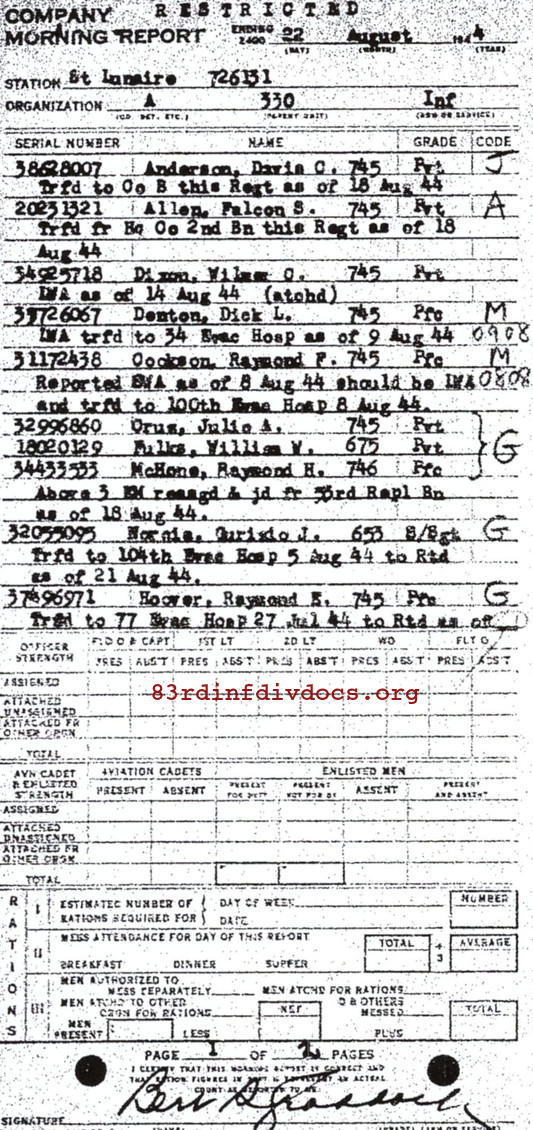 RESTRICTED
COMPANY
MORNING REPORT ENDING 2400 22 August 1944
(DAY) (MONTH) (YEAR)
STATION St Lunaire 726131
ORGANIZATION A 330 Inf
(CO. DET. ETC.) (PARENT UNIT) (ARM OR SERVICE)
SERIAL NUMBER NAME GRADE CODE
38628007 Anderson, Davis C. 745 Pvt J
Trfd to Co B this Regt as of 18 Aug 44
20231321 Allen, Falcon S. 745 Pvt A
Trfd fr Hq Co 2nd Bn this Regt as of 18
Aug 44
34925718 Dixon, Wilmer C. 745 Pvt
LWA as of 14 Aug 44 (atchd)
Denton, Dick L. 745 Pfc M
LWA trfd to 34 Evac Hosp as of 9 Aug 44 0908
31172438 Cookson, Raymond F. 745 Pfc M
Reported SWA as of 8 Aug 44 should be LWA 0808
and trfd to 100th Evac Hosp 8 Aug 44.
32996860 Cruz, Julio A. 745 Pvt
18020129 Fulks, William W. 675 Pvt G
34433533 McHone, Raymond H. 746 Pfc
Above 3 EM reasgd & jd fr 53rd Repl Bn
as of 18 Aug 44.
32055095 J. 653 S/Sgt G
Trfd to 104th Evac Hosp 5 Aug 44 to Rtd
as of 21 Aug 44.
37896971 Hoover, Raymond E. 745 Pfc G
Trfd to 77 Evac Hosp 27 Jul 44 to Rtd as of
OFFICER STRENGTH FLD O & CAPT 1ST LT 2D LT WO FLT O
PRES ABS'T PRES ABS'T PRES ABS'T PRES ABS'T PRES ABS'T
83rdinfdivdocs.org
ASSIGNED
ATTACHED UNASSIGNED
ATTACHED FR OTHER ORGN
TOTAL
AVN CADET & ENLISTED STRENGTH AVIATION CADETS ENLISTED MEN
PRESENT ABSENT PRESENT FOR DUTY PRESENT NOT FOR DY ABSENT PRESENT AND ABSENT
ASSIGNED
ATTACHED UNASSIGNED
ATTACHED FR OTHER ORGN
TOTAL
RATIONS
I ESTIMATED NUMBER OF RATIONS REQUIRED FOR DAY OF WEEK DATE NUMBER
II MESS ATTENDANCE FOR DAY OF THIS REPORT TOTAL ÷ 3 AVERAGE
BREAKFAST DINNER SUPPER
III MEN AUTHORIZED TO MESS SEPARATELY MEN ATCHD FOR RATIONS
MEN ATCHD TO OTHER ORGN FOR RATIONS NET O & OTHERS MESSED TOTAL
MEN PRESENT LESS PLUS
PAGE 1 OF 2 PAGES
I CERTIFY THAT THIS MORNING REPORT IS CORRECT AND
SIGNATURE